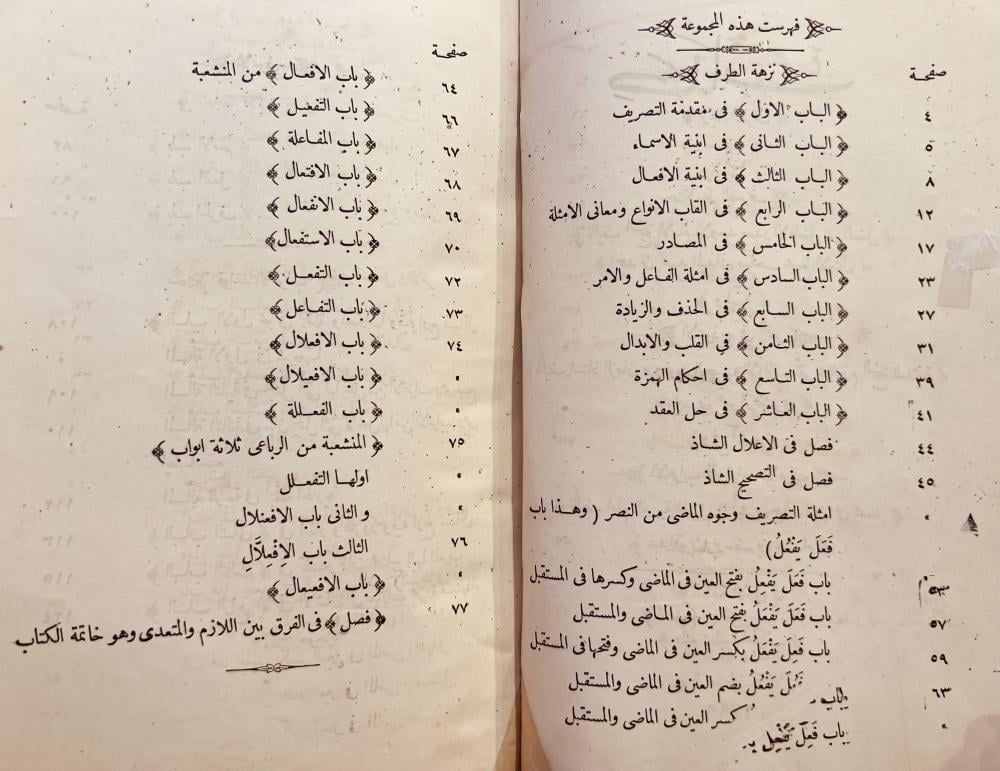 فهرست هذه المجموعة
صفحة
نزهة الطرف
٤ ﴿ الباب الاول ﴾ فى مقدمة التصريف
٥ ﴿ الباب الثانى ﴾ فى ابنية الاسماء
٨ ﴿ الباب الثالث ﴾ فى ابنية الافعال
١٢ ﴿ الباب الرابع ﴾ فى القاب الانواع ومعانى الامثلة
١٧ ﴿ الباب الخامس ﴾ فى المصادر
٢٣ ﴿ الباب السادس ﴾ فى امثلة الفاعل والامر
٢٧ ﴿ الباب السابع ﴾ فى الحذف والزيادة
٣١ ﴿ الباب الثامن ﴾ فى القلب والابدال
٣٩ ﴿ الباب التاسع ﴾ فى احكام الهمزة
٤١ ﴿ الباب العاشر ﴾ فى حل العقد
٤٤ فصل فى الاعلال الشاذ
٤٥ فصل فى التصحيح الشاذ
" امثلة التصريف وجوه الماضى من النصر ( وهذا باب
فَعَلَ يَفْعُلُ )
٥٣ باب فَعَلَ يَفْعِلُ بفتح العين فى الماضى وكسرها فى المستقبل
٥٧ باب فَعَلَ يَفْعَلُ بفتح العين فى الماضى والمستقبل
٥٩ باب فَعِلَ يَفْعَلُ بكسر العين فى الماضى وفتحها فى المستقبل
٦٣ باب فَعُلَ يَفْعُلُ بضم العين فى الماضى والمستقبل
" باب فَعِلَ يَفْعِلُ بكسر العين فى الماضى والمستقبل
صفحة
٦٤ ﴿ باب الافعال ﴾ من المنشعبة
٦٦ ﴿ باب التفعيل ﴾
٦٧ ﴿ باب المفاعلة ﴾
٦٨ ﴿ باب الافتعال ﴾
٦٩ ﴿ باب الانفعال ﴾
٧٠ ﴿ باب الاستفعال ﴾
٧٢ ﴿ باب التفعل ﴾
٧٣ ﴿ باب التفاعل ﴾
٧٤ ﴿ باب الافعلال ﴾
" ﴿ باب الافعيلال ﴾
" ﴿ باب الفعللة ﴾
٧٥ ﴿ المنشعبة من الرباعى ثلاثة ابواب ﴾
" اولها التفعلل
" والثانى باب الافعنلال
٧٦ الثالث باب الاِفْعِلَّالِ
" ﴿ باب الافعيعال ﴾
٧٧ ﴿ فصل ﴾ فى الفرق بين اللازم والمتعدى وهو خاتمة الكتاب